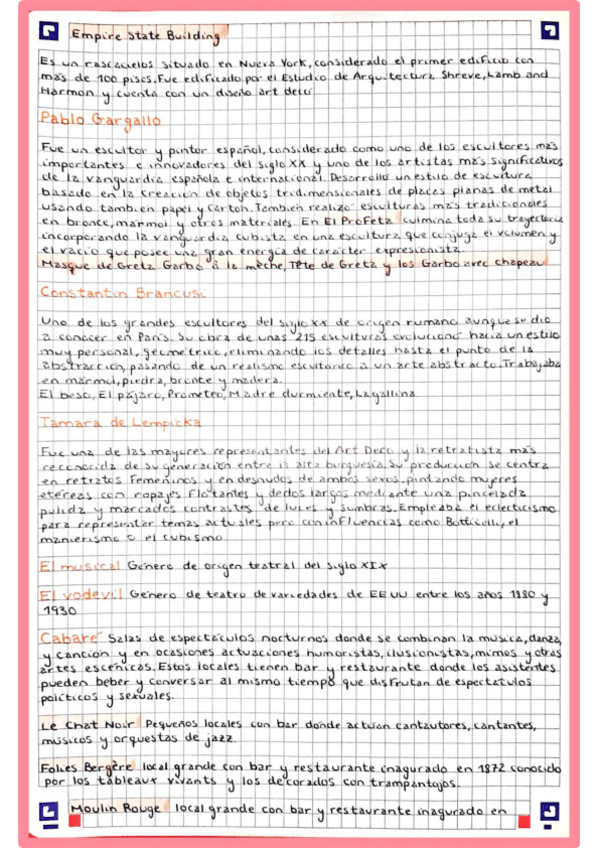 Empire State Building
Es un rascacielos situado en Nueva York, considerado el primer edificio con
más de 100 pisos. Fue edificado por el Estudio de Arquitectura Shreve, Lamb and
Harmon y cuenta con un diseño art decó
Pablo Gargallo
Fue un escultor y pintor español, considerado como uno de los escultores más
importantes e innovadores del siglo XX y uno de los artistas más significativos
de la vanguardia española e internacional. Desarrolló un estilo de escultura
basado en la creación de objetos tridimensionales de placas planas de metal
usando también papel y cartón. También realizó esculturas más tradicionales
en bronce, marmol y otros materiales. En El Profeta culmina toda su trayectoria
incorporando la vanguardia cubista en una escultura que conjuga el volumen y
el vacio que posee una gran energía de carácter expresionista.
Masque de Greta Garbo à la mèche, Tête de Greta y los Garbo avec chapeau
Constantin Brancusi
Uno de los grandes escultores del siglo XX de origen rumano aunque se dio
a conocer en París. Su obra de unas 215 esculturas evolucionó hacia un estilo
muy personal, geometrico, eliminando los detalles hasta el punto de la
abstracción, pasando de un realismo escultórico a un arte abstracto. Trabajaba
en marmol, piedra, bronce y madera.
El beso, El pájaro, Prometeo, Madre durmiente, La gallina
Tamara de Lempicka
Fue una de las mayores representantes del Art Decó y la retratista más
reconocida de su generación entre la alta burguesía. Su producción se centra
en retratos femeninos y en desnudos de ambos sexos, pintando mujeres
etéreas con ropajes flotantes y dedos largos mediante una pincelada
pulida y marcados contrastes de luces y sombras. Empleaba el eclecticismo
para representar temas actuales pero con influencias como Botticelli, el
manierismo o el cubismo
El musical Género de origen teatral del siglo XIX
El vodevil Género de teatro de variedades de EEUU entre los años 1880 y
1930
Cabaré Salas de espectáculos nocturnos donde se combinan la música, danza
y canción y en ocasiones actuaciones humoristas, ilusionistas, mimos y otras
artes escénicas. Estos locales tienen bar y restaurante donde los asistentes
pueden beber y conversar al mismo tiempo que disfrutan de espectáculos
políticos y sexuales.
Le Chat Noir Pequeños locales con bar donde actúan cantautores, cantantes,
músicos y orquestas de jazz.
Folies Bergère local grande con bar y restaurante inagurado en 1872 conocido
por los tableaux vivants y los decorados con trampantojos.
Moulin Rouge local grande con bar y restaurante inagurado en